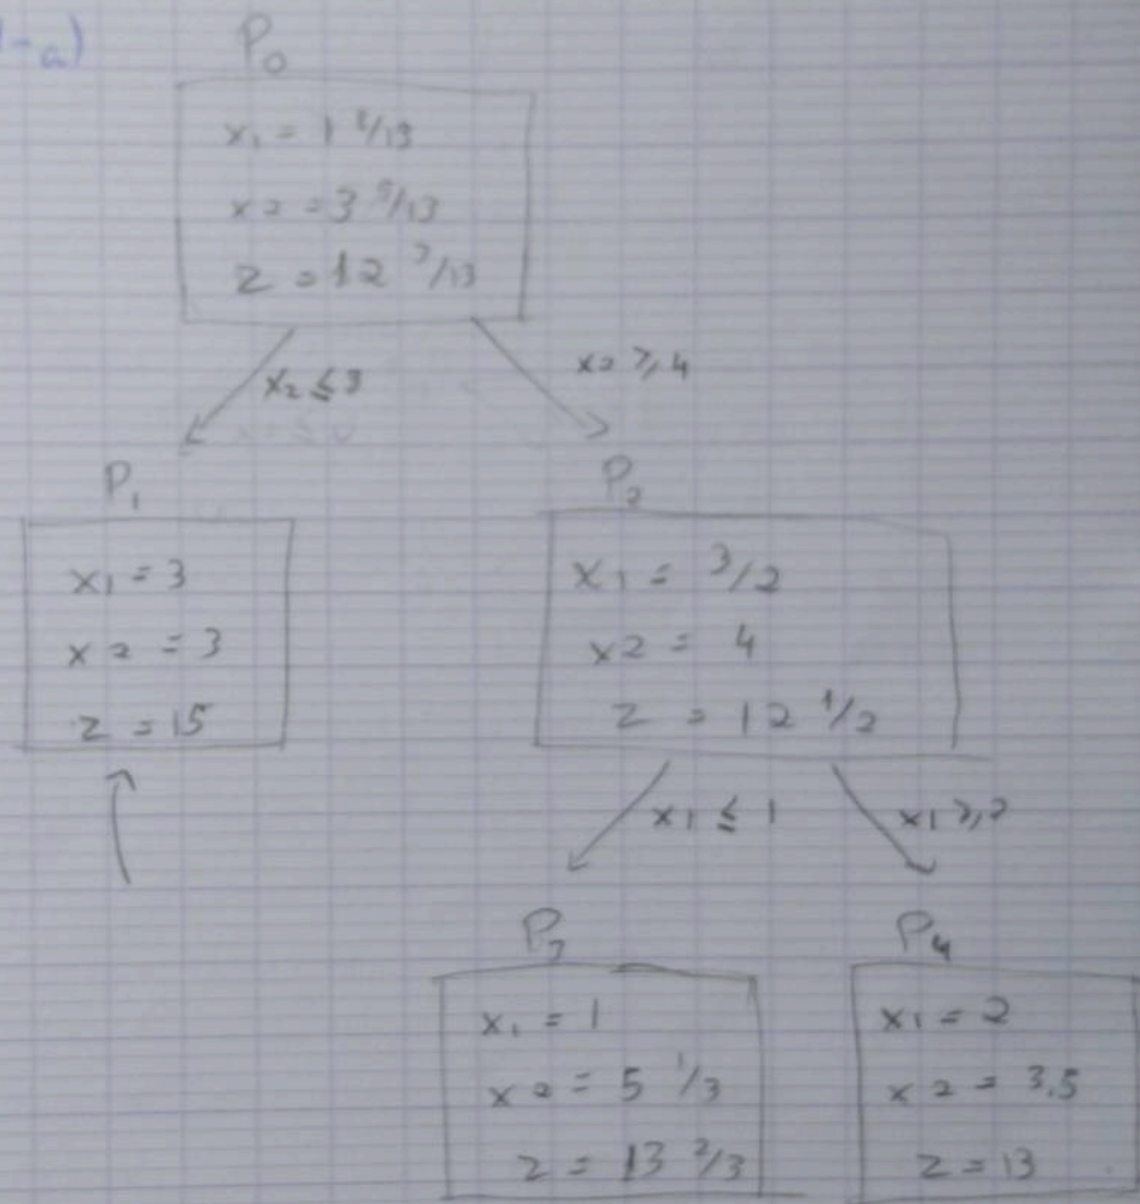 1-a)
P0
x1 = 1 2/13
x2 = 3 5/13
z = 12 7/13
x2 ≤ 3
x2 ≥ 4
P1
P2
x1 = 3
x2 = 3
z = 15
x1 = 3/2
x2 = 4
z = 12 1/2
x1 ≤ 1
x1 ≥ 2
P3
P4
x1 = 1
x2 = 5 1/3
z = 13 2/3
x1 = 2
x2 = 3.5
z = 13